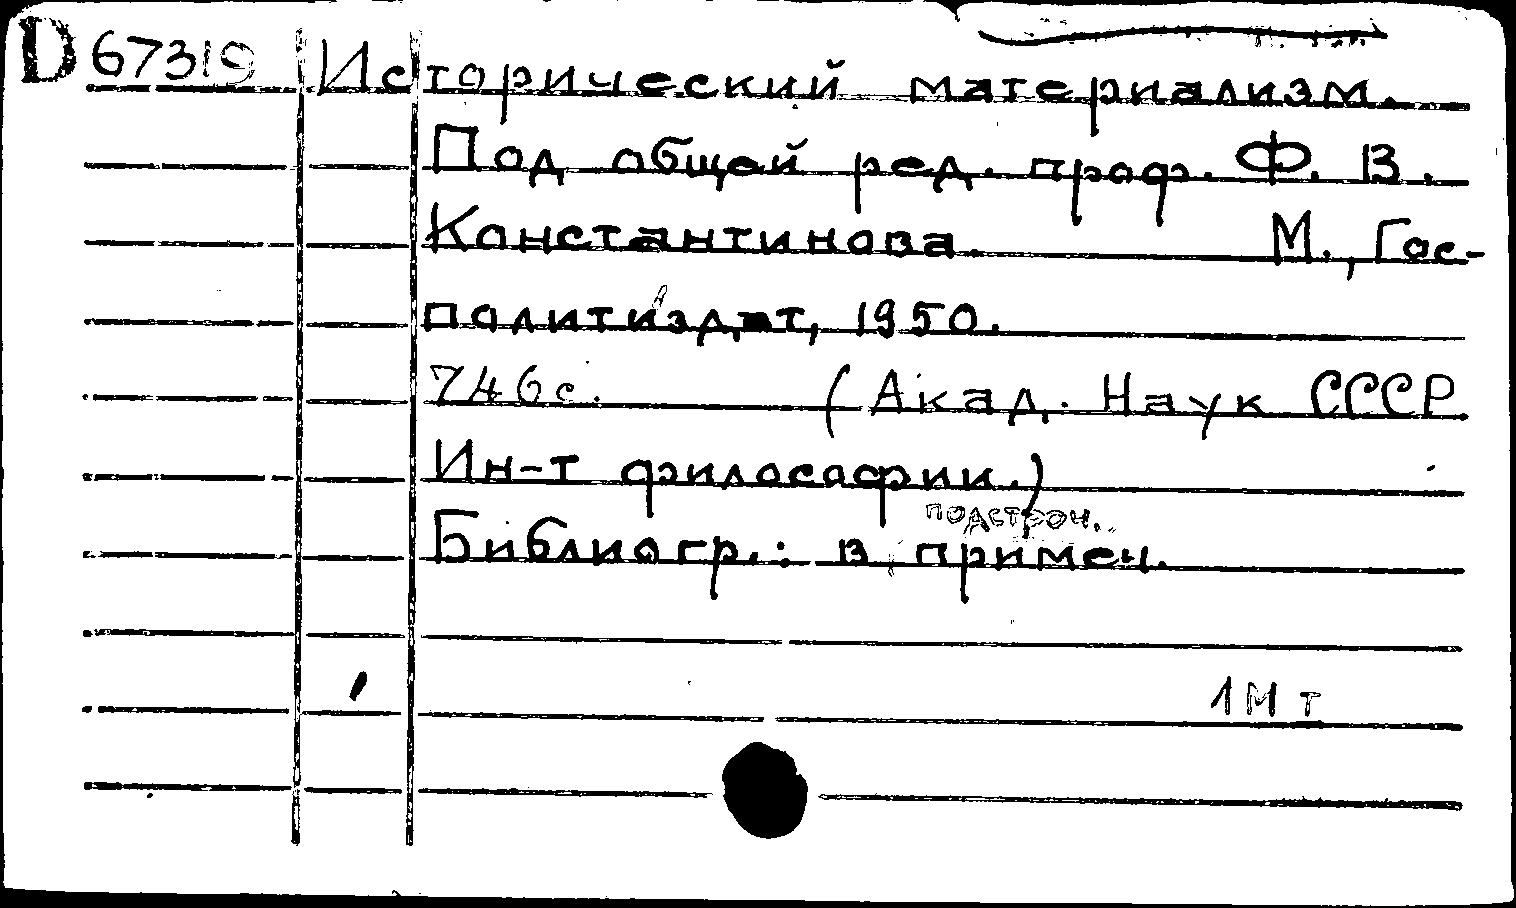 D 67319 Исторический материализм.
Под общей ред. проф. Ф. В.
Константинова. М., Гос-
политиздат, 1950.
746с. (Акад. Наук СССР
Ин-т философии.)
подстроч.
Библиогр.: в примеч.
1М т